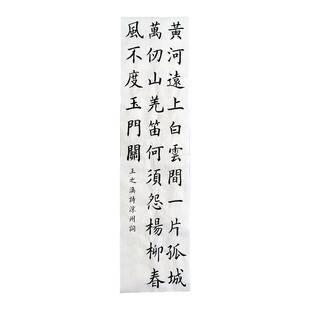 黃河遠上白雲間一片孤城
萬仞山羌笛何須怨楊柳春
風不度玉門關
王之渙詩涼州詞